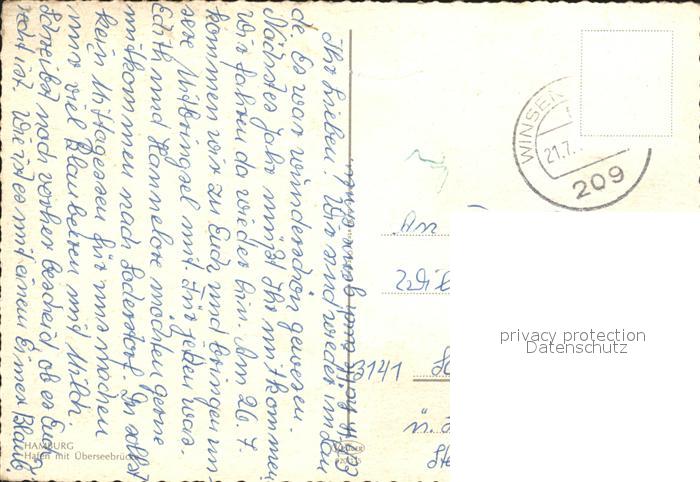 Ihr Lieben! Wir sind wieder im Lan
de. Es war wunderschön gewesen.
Nächstes Jahr müßt Ihr mitkommen
wir fahren da wieder hin. Am 26. 7.
kommen wir zu Euch und bringen un
sere Mitbringsel mit. Für jeden was.
Edith und Hannelore möchten gerne
mitkommen nach Soderstorf. Ihr sollst
kein Mittagessen für uns machen
nur viel Blaubeeren mit Milch.
Schreibst noch vorher bescheid, ob es Euch so
recht ist. Wie ist es mit einem Eimer Blaub
HAMBURG
Hafen mit Überseebrücke
WINSEN
21.7.
209
An
3141
ü.
privacy protection
Datenschutz